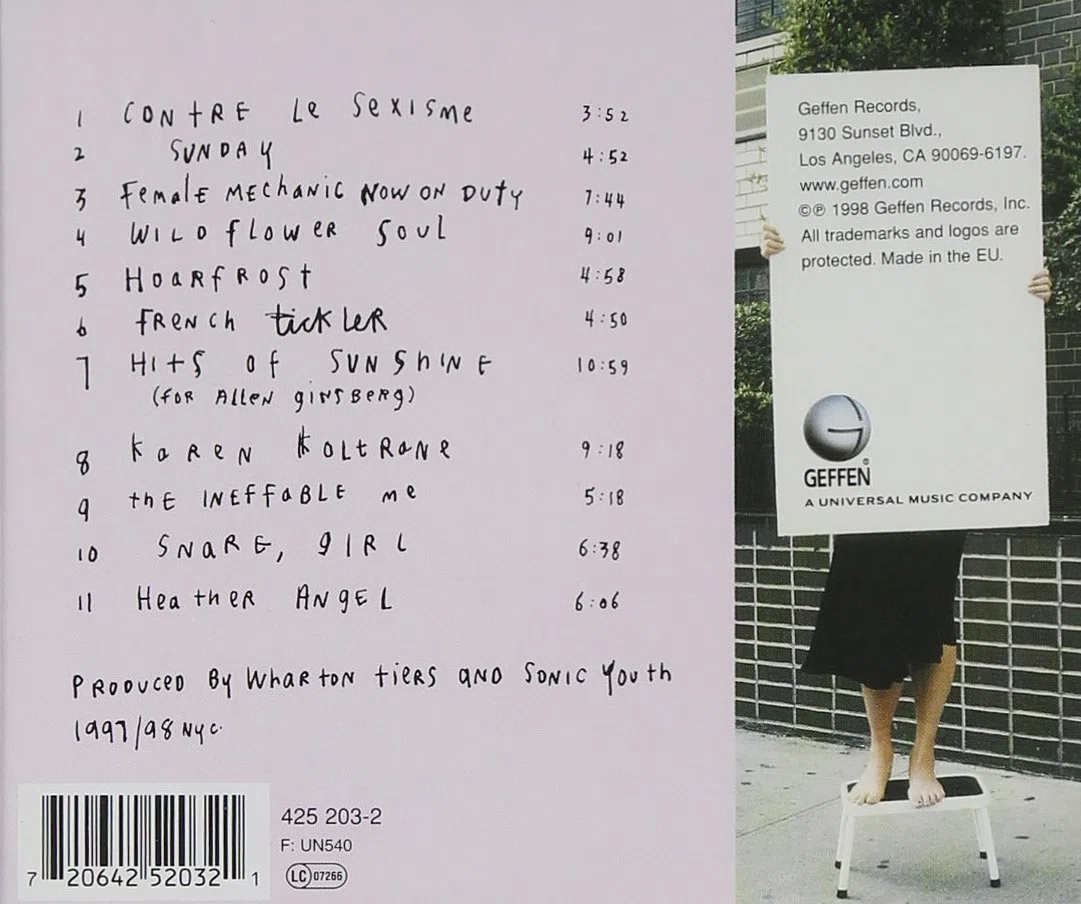 1 CONTRE Le SexISme 3:52
2 SUNDAY 4:52
3 Female MEChaNIC NOW ON DUTY 7:44
4 WILD flOWeR SOUl 9:01
5 HOaRfROSt 4:58
6 fRENCh tICkLeR 4:50
7 HItS of SUNShINE 10:59
(foR AlleN gINSBeRg)
8 kaReN kOLtRaNe 9:18
9 thE INEffaBLE me 5:18
10 SNaRE, gIRL 6:38
11 HeatheR ANgEL 6:06
PRODUCED By WhaRtoN tIeRS aND SONIC Youth
1997/98 NyC.
7 20642 52032 1
425 203-2
F: UN540
LC 07266
Geffen Records,
9130 Sunset Blvd.,
Los Angeles, CA 90069-6197.
www.geffen.com
©℗ 1998 Geffen Records, Inc.
All trademarks and logos are
protected. Made in the EU.
GEFFEN®
A UNIVERSAL MUSIC COMPANY